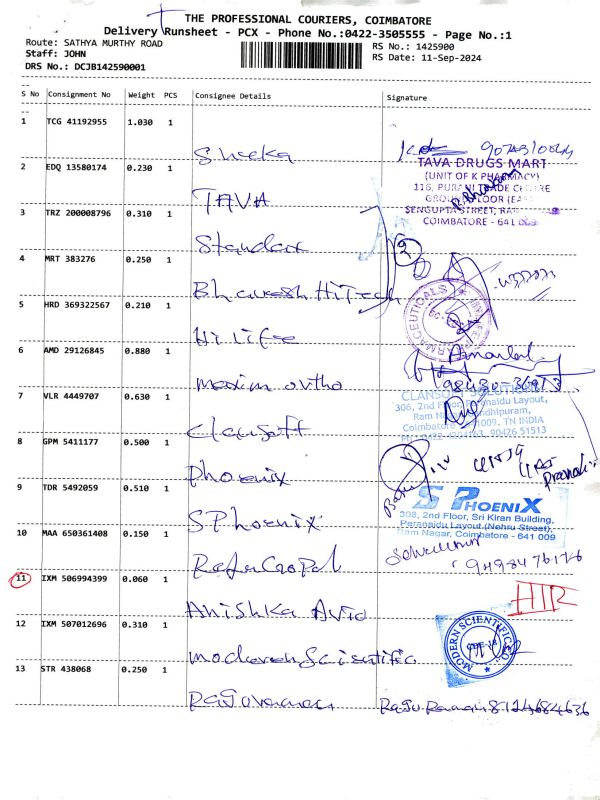 THE PROFESSIONAL COURIERS, COIMBATORE
Delivery Runsheet - PCX - Phone No.:0422-3505555 - Page No.:1
Route: SATHYA MURTHY ROAD
RS No.: 1425900
Staff: JOHN
RS Date: 11-Sep-2024
DRS No.: DCJB142590001
S No Consignment No Weight PCS Consignee Details Signature
1 TCG 41192955 1.030 1
Sneeka
2 EDQ 13580174 0.230 1
TAVA
TAVA DRUGS MART
(UNIT OF K PHARMACY)
116, PURANI TRADE CENTRE
GROUND FLOOR (EAST
SENGUPTA STREET, RAM
COIMBATORE - 641 009
3 TRZ 200008796 0.310 1
Standard
2
4 MRT 383276 0.250 1
Bhavesh HiTech
5 HRD 369322567 0.210 1
Hi Life
6 AMD 29126845 0.880 1
maxim ortho
7 VLR 4449707 0.630 1
Clansoft
CLANSOFT SOLUTIONS
306, 2nd Floor, Peranaidu Layout,
Ram Nagar, Gandhipuram,
Coimbatore 641009. TN INDIA
90426 51513
8 GPM 5411177 0.500 1
phoenix
9 TDR 5492059 0.510 1
S Phoenix
S PHOENIX
308, 2nd Floor, Sri Kiran Building,
Peranaidu Layout,(Nehru Street),
Ram Nagar, Coimbatore - 641 009
10 MAA 650361408 0.150 1
RajaGopal
11 IXM 506994399 0.060 1
Anishka Avio
12 IXM 507012696 0.310 1
modoren Scisatific
MODERN SCIENTIFIC
13 STR 438068 0.250 1
Raju Raman 8124684636